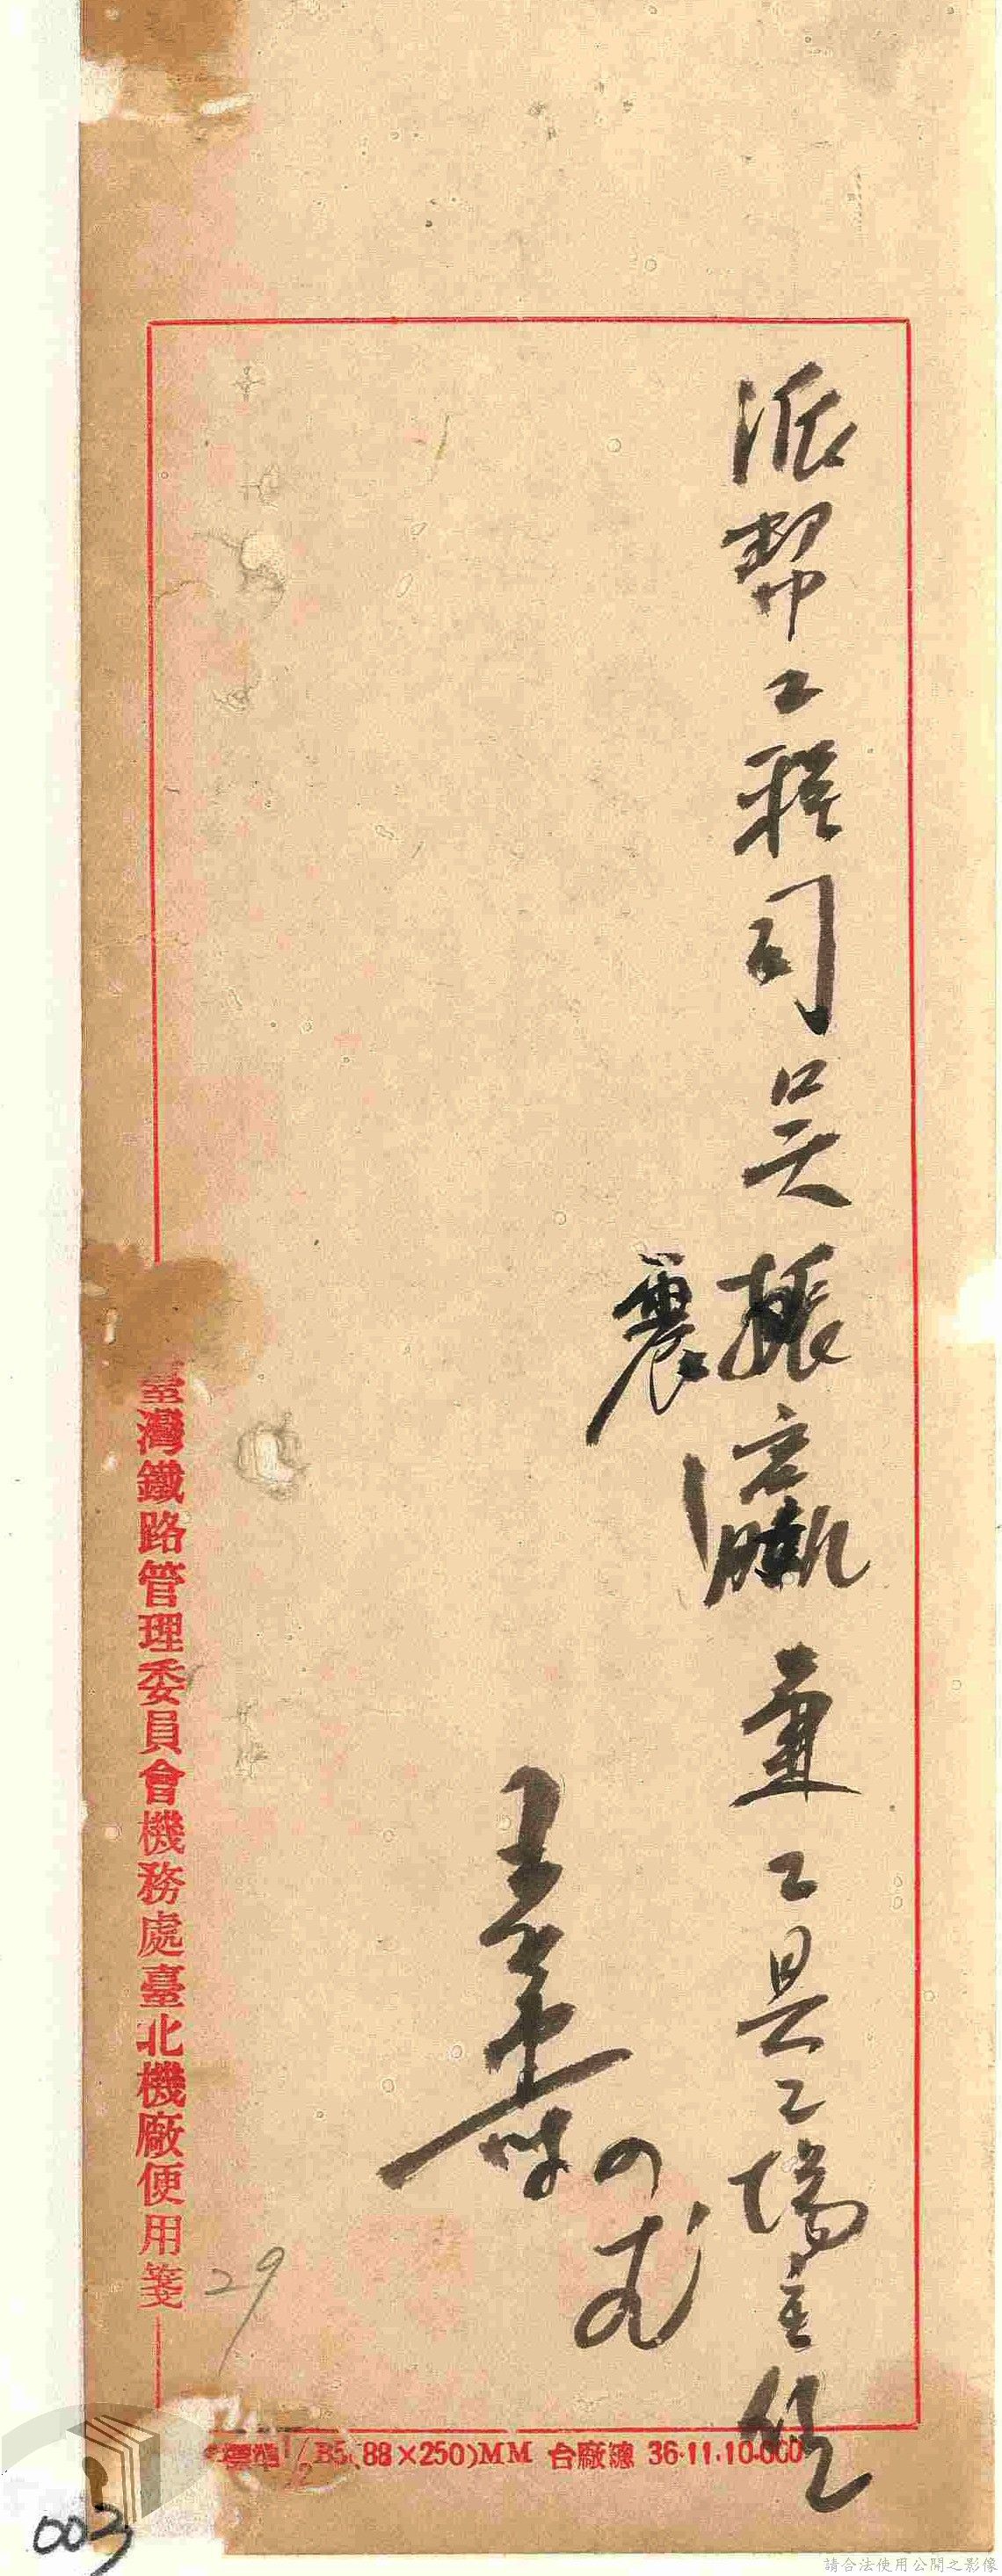 派幫工程司吳振瀛兼工具工場主任
震
臺灣鐵路管理委員會機務處臺北機廠便用箋
29
標準1/2B5(88×250)MM 台廠總 36.11.10.000
003
請合法使用公開之影像